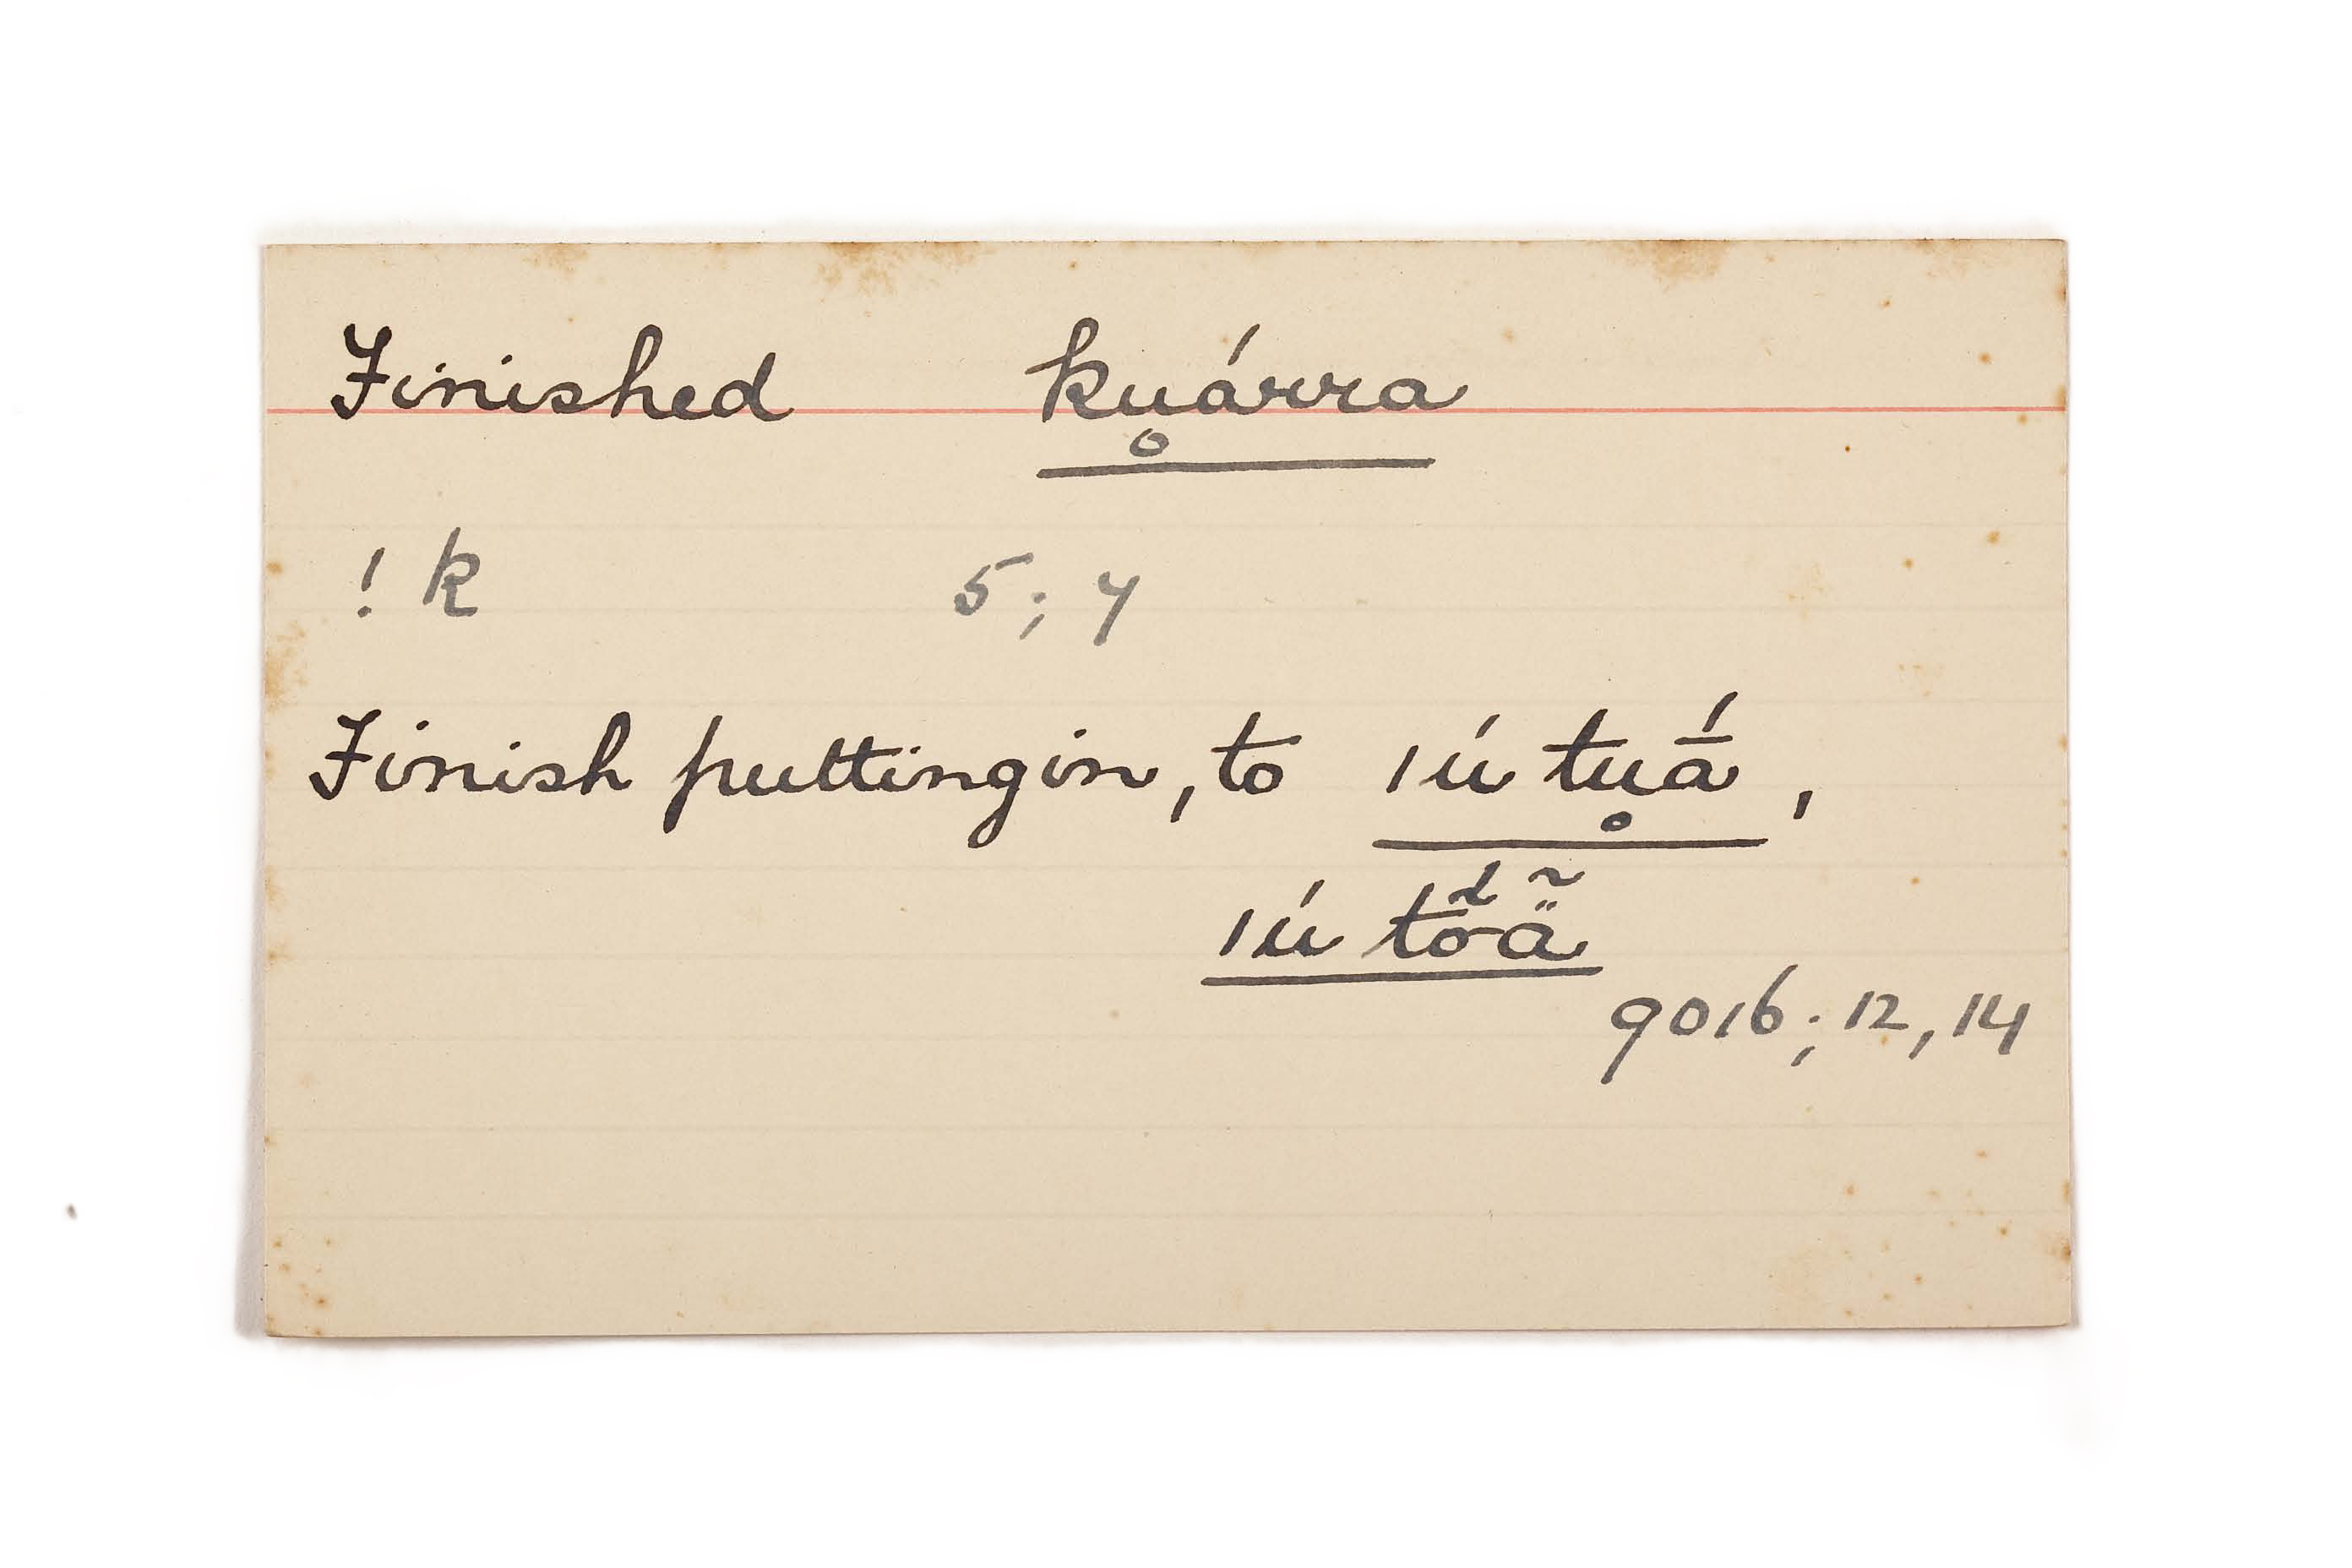 Finished ku̥árra
! k 5; 7
Finish putting in, to ǀú tu̥ā́,
ǀú tȭ́ä̃
9016; 12, 14